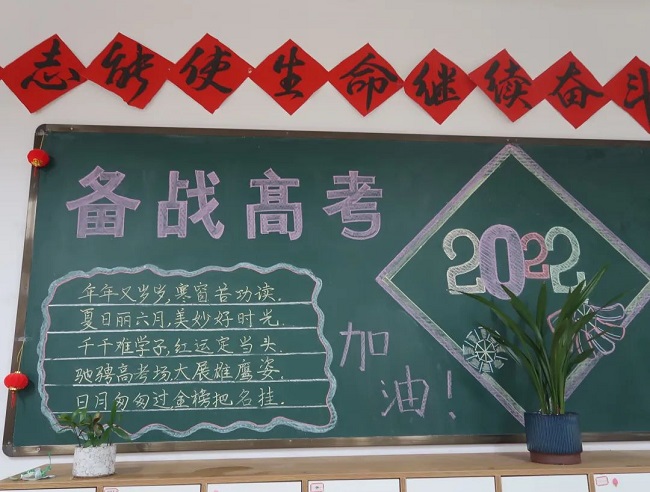 志能使生命继续奋斗
备战高考
2022
年年又岁岁,寒窗苦功读.
夏日丽六月,美妙好时光.
千千难学子,红运定当头.
驰骋高考场,大展雄鹰姿.
日月匆匆过,金榜把名挂.
加油!